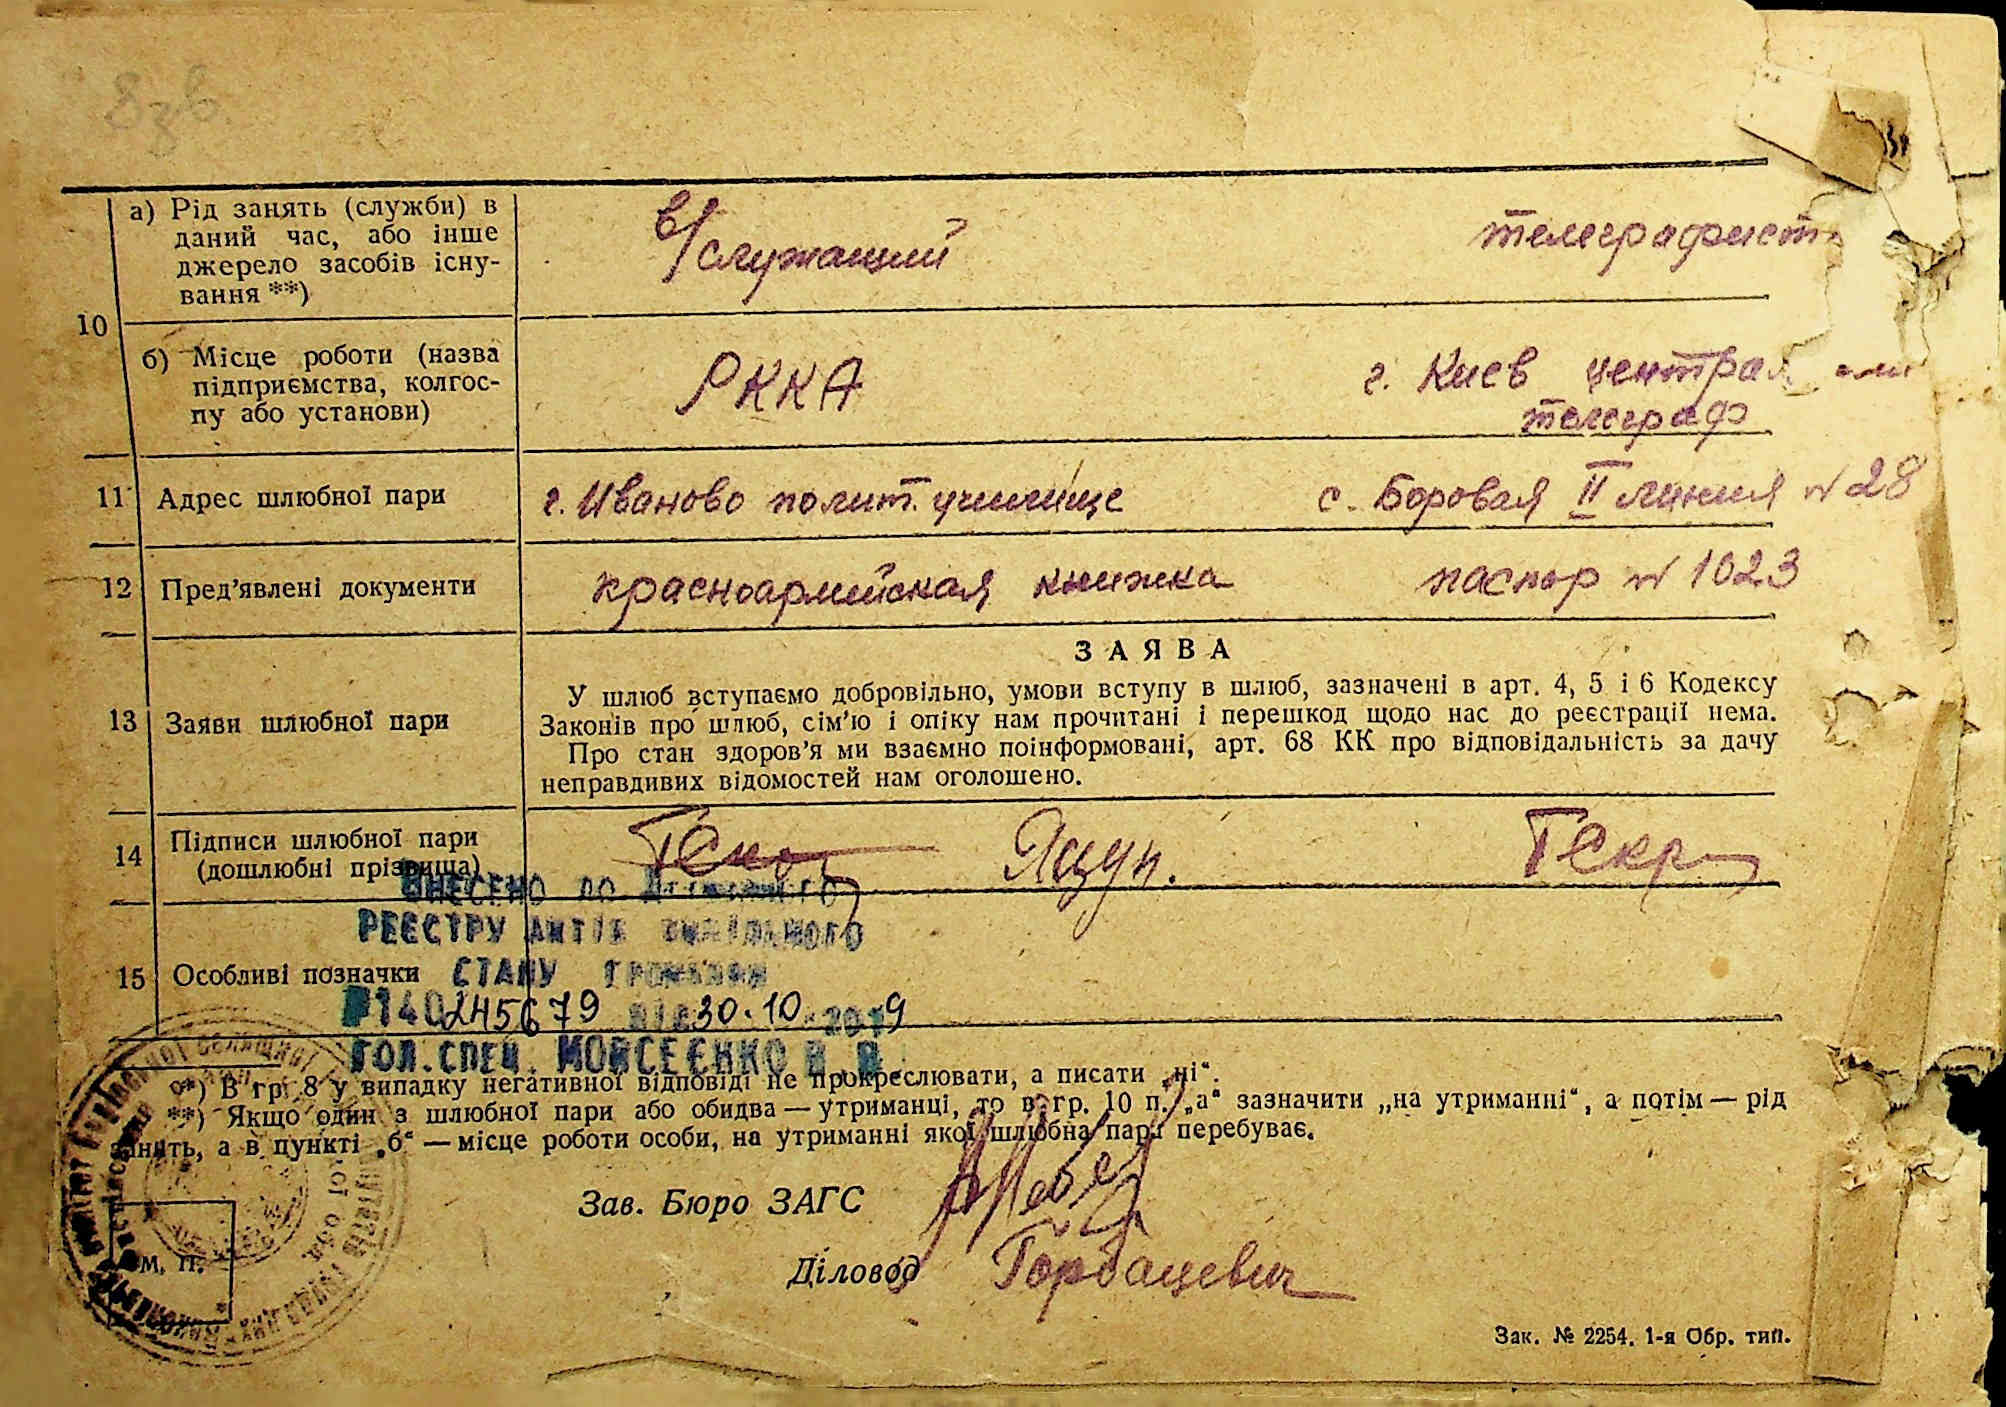 10
а) Рід занять (служби) в
даний час, або інше
джерело засобів існу-
вання **)
в/служащий
телеграфист
б) Місце роботи (назва
підприємства, колгос-
пу або установи)
РККА
г. Киев
телеграф
11 Адрес шлюбної пари
г. Иваново полит. училище
с. Боровая II линия № 28
12 Пред’явлені документи
красноармейская книжка
паспор № 1023
ЗАЯВА
13 Заяви шлюбної пари
У шлюб вступаємо добровільно, умови вступу в шлюб, зазначені в арт. 4, 5 і 6 Кодексу
Законів про шлюб, сім’ю і опіку нам прочитані і перешкод щодо нас до реєстрації нема.
Про стан здоров’я ми взаємно поінформовані, арт. 68 КК про відповідальність за дачу
неправдивих відомостей нам оголошено.
14 Підписи шлюбної пари
(дошлюбні прізвища)
Яцун.
ВНЕСЕНО ДО Державного
РЕЄСТРУ АКТІВ ЦИВІЛЬНОГО
15 Особливі позначки
СТАНУ ГРОМАДЯН
№140245679 від 30.10.2019
ГОЛ.СПЕЦ. МОЙСЕЄНКО
*) В гр. 8 у випадку негативної відповіді не прокреслювати, а писати „ні“.
**) Якщо один з шлюбної пари або обидва — утриманці, то в гр. 10 п. „а“ зазначити „на утриманні“, а потім — рід
занять, а в пункті „б“ — місце роботи особи, на утриманні якої шлюбна пара перебуває.
Зав. Бюро ЗАГС
Діловод Горбацевич
М. П.
Зак. № 2254. 1-я Обр. тип.